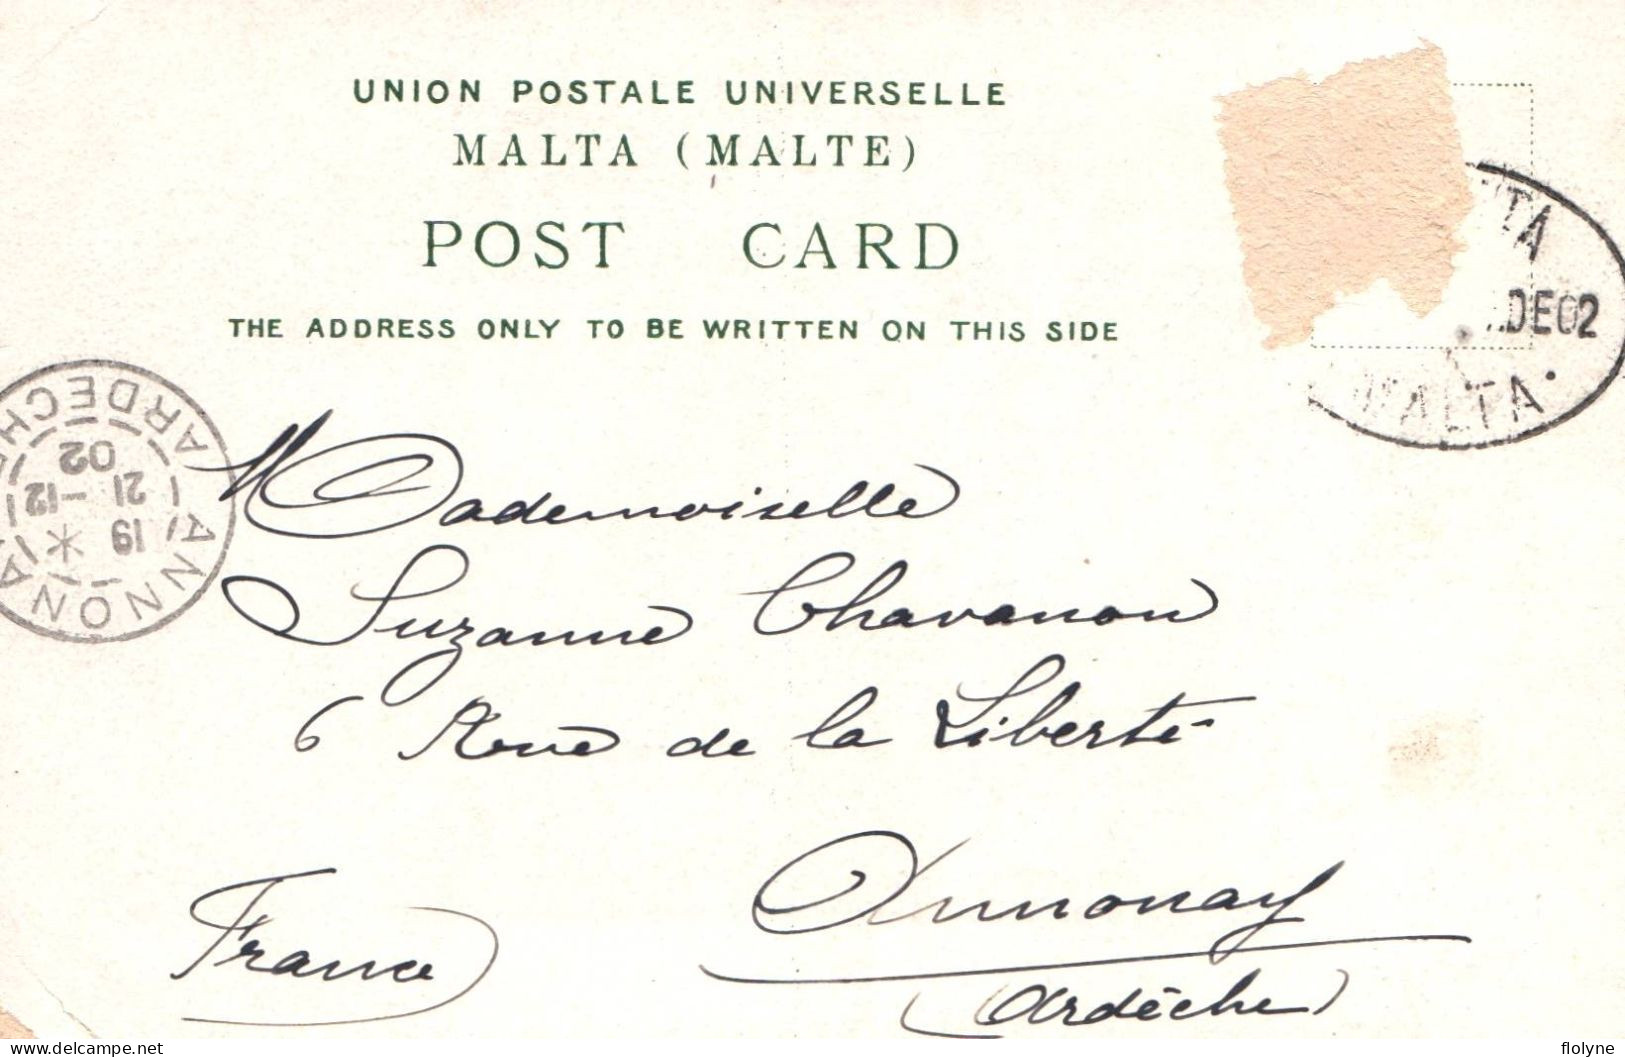 UNION POSTALE UNIVERSELLE
MALTA (MALTE)
POST CARD
THE ADDRESS ONLY TO BE WRITTEN ON THIS SIDE
TTA
DE 02
MALTA
ANNONA
ARDECHE
19 *
21 -12
02
Mademoiselle
Suzanne Chavanon
6 Rue de la Liberté
Annonay
(Ardèche)
France
delcampe.net
flolyne